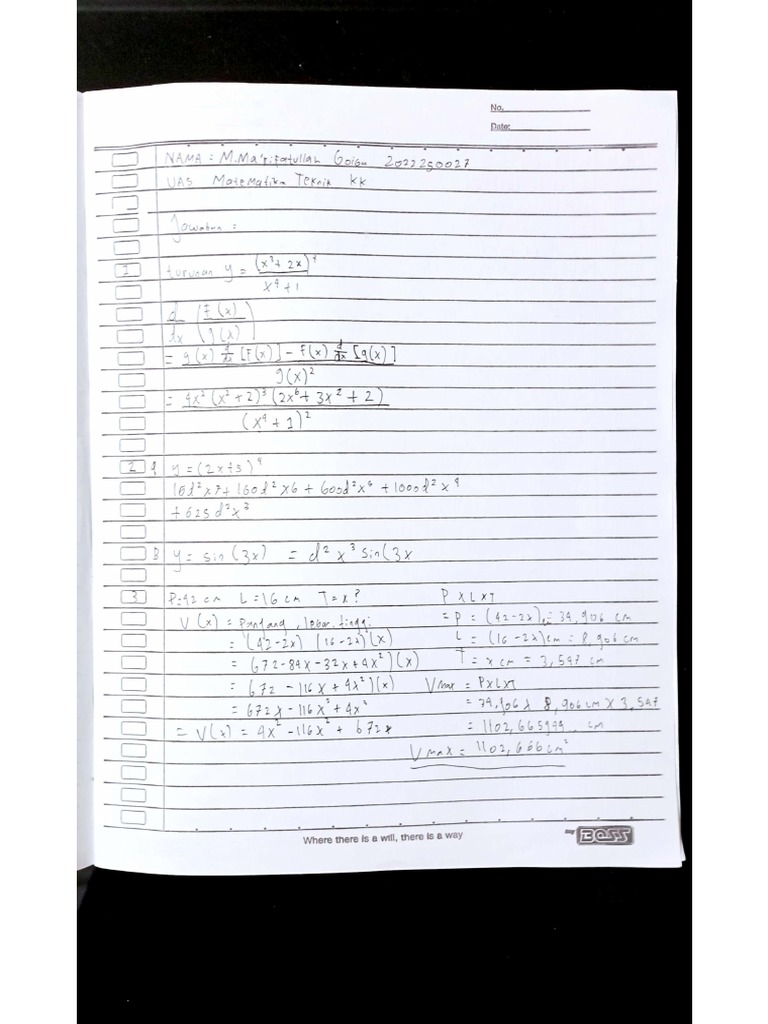 No.
Date:
NAMA : M.Ma'rifatullah 2022250027
UAS Matematika Teknik KK
Jawaban :
1 turunan y = (x³ + 2x)⁴ / x⁴ + 1
d/dx (F(x) / g(x))
= g(x) d/dx [F(x)] - F(x) d/dx [g(x)] / g(x)²
= 4x² (x² + 2)³ (2x⁶ + 3x² + 2) / (x⁴ + 1)²
2 A y = (2x+5)⁴
16d²x7 + 160d²x6 + 600d²x⁵ + 1000d²x⁴
+ 625d²x³
B y = sin (3x) = d² x³ sin(3x
3 P=42 cm L=16 cm T=x?
V(x) = Panjang . lebar . tinggi
= (42-2x) (16-2x)(x)
= (672-84x-32x+4x²)(x)
= 672 - 116x + 4x²)(x)
= 672x - 116x² + 4x³
= V(x) = 4x³ - 116x² + 672x
P x L x T
= P = (42-2x) = 34,906 cm
L = (16-2x)cm = 8,906 cm
T = x cm = 3,547 cm
Vmax = PxLxT
= 34,906 x 8,906cm x 3,547
= 1102,665999 cm
Vmax = 1102,666cm²
Where there is a will, there is a way
by BOSS